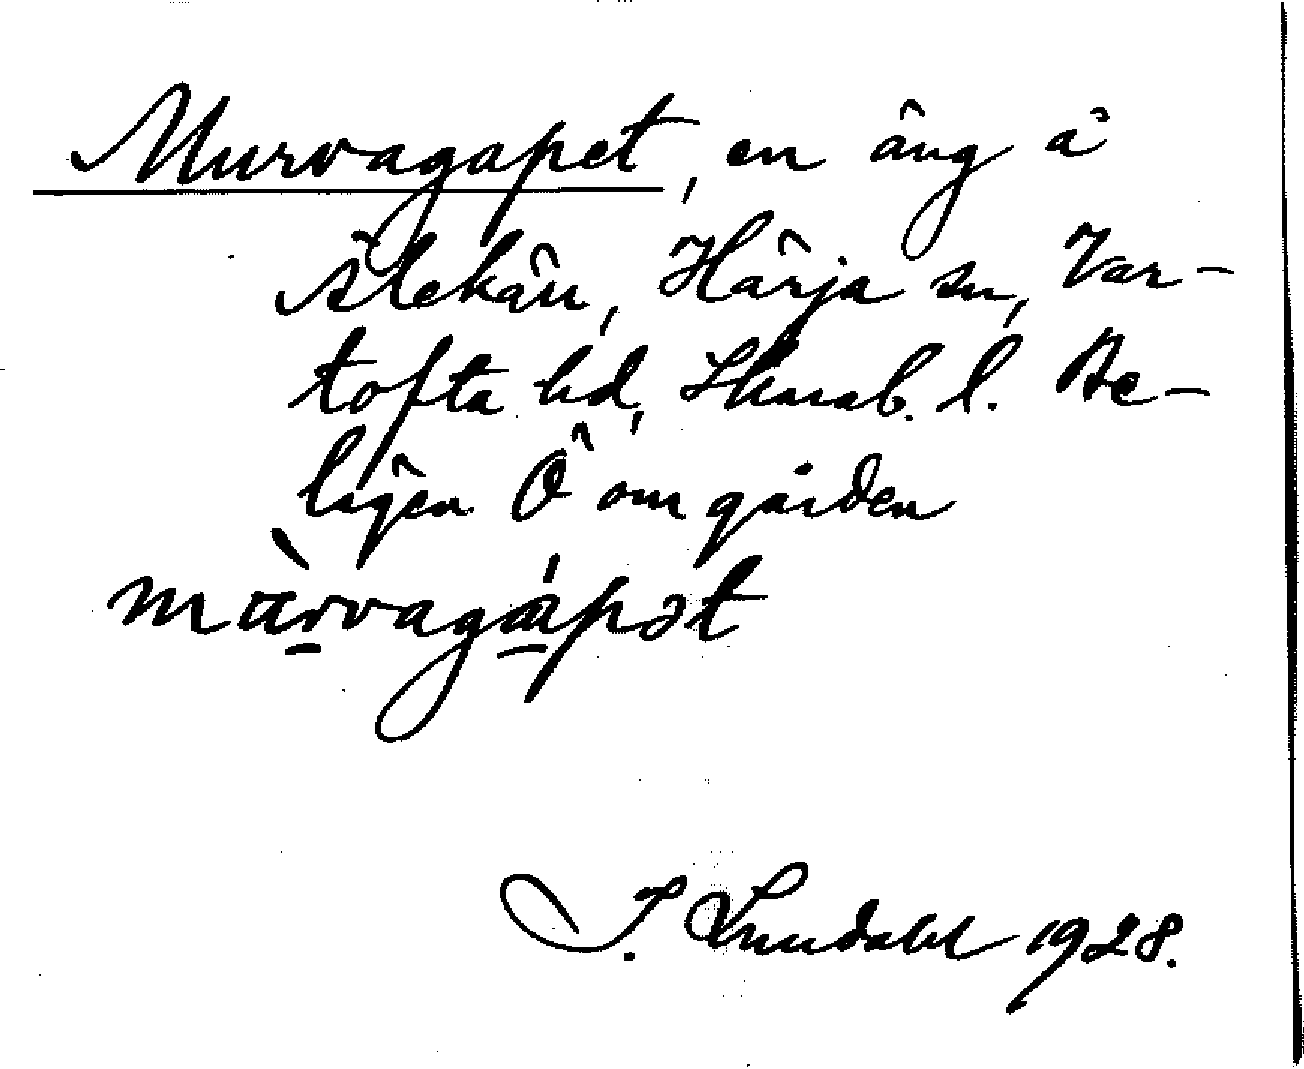 Murvagapet, en äng å
Alekärr, Härja sn, Var-
tofta hd, Skarab. l. Be-
lägen Ö om gården
mu̇rvagápət
I. Lundahl 1928.